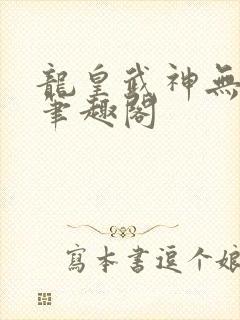 龍皇武神無
筆趣閣
寫本書逗个娘